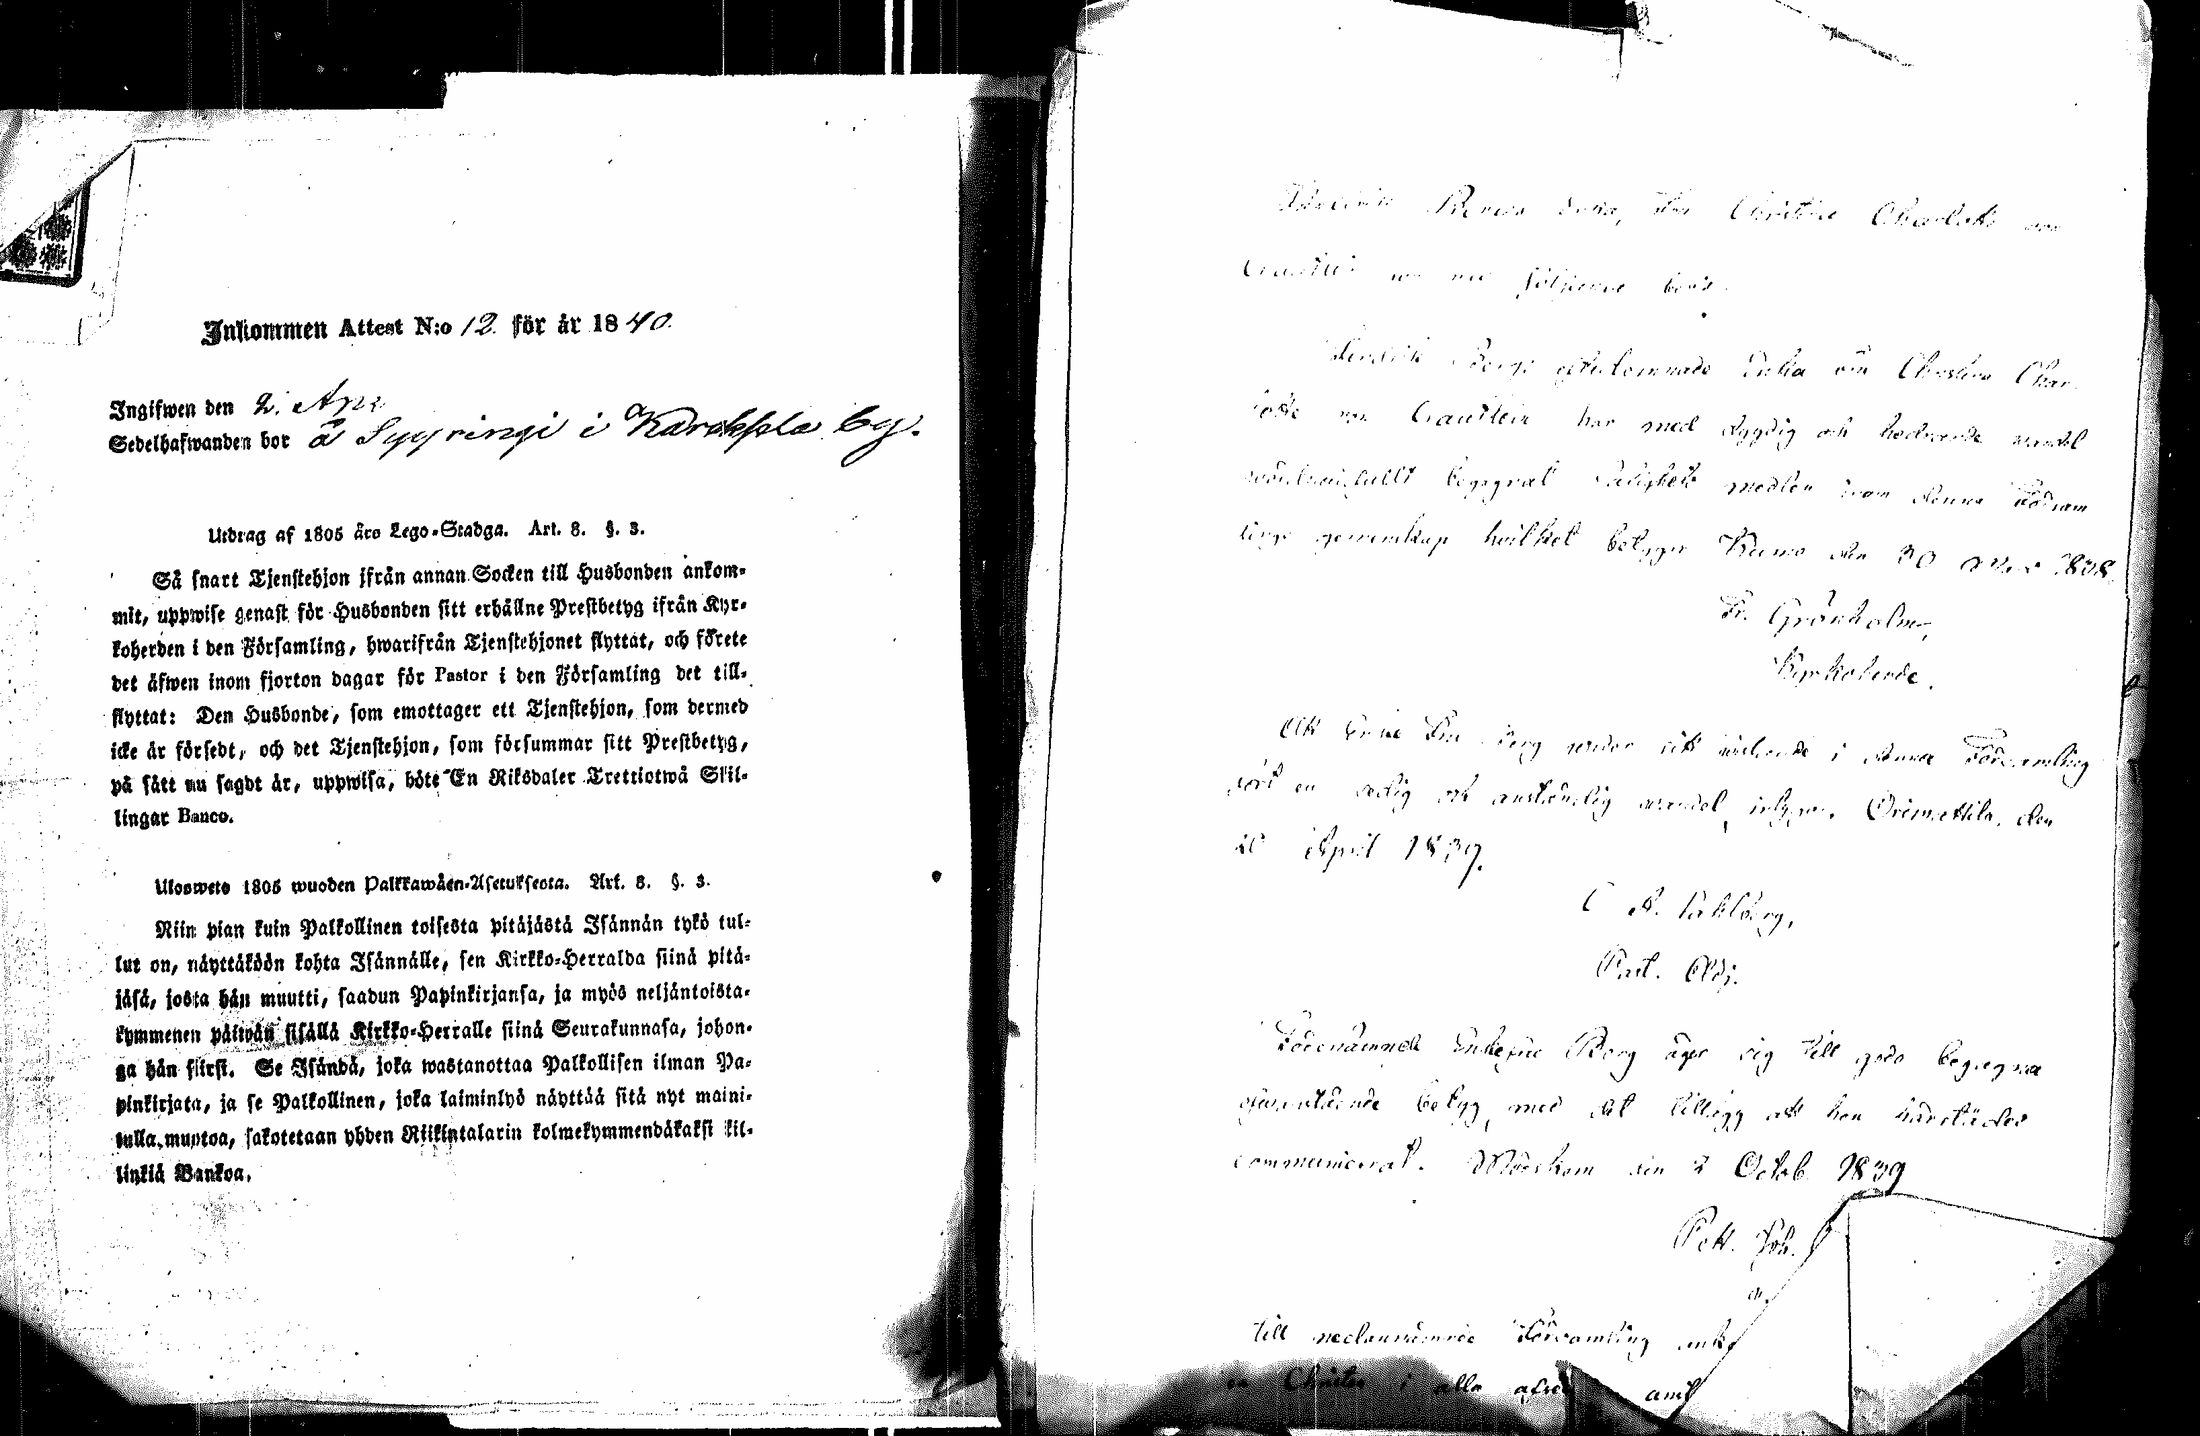 Inkommen Attest N:o 12. för år 1840.
Ingifwen den 2. Apr
Sedelhafwanden bor å Syyringi i Karakpla by.
Utdrag af 1805 års Lego-Stadga. Art. 8. §. 3.
Så snart Tjenstehjon ifrån annan Socken till Husbonden ankom-
mit, uppwise genast för Husbonden sitt erhållne Prestbetyg ifrån Kyr-
koherden i den Församling, hwarifrån Tjenstehjonet flyttat, och förete
det äfwen inom fjorton dagar för Pastor i den Församling det till-
flyttat: Den Husbonde, som emottager ett Tjenstehjon, som dermed
icke är försedt, och det Tjenstehjon, som försummar sitt Prestbetyg,
på sätt nu sagdt är, uppwisa, böte En Riksdaler Trettiotwå Skil-
lingar Banco.
Ulosweto 1805 wuoden Palkkawäen-Asetuksesta. Art. 8. §. 3.
Niin pian kuin Palkollinen toisesta pitäjästä Isännän tykö tul-
lut on, näyttäköön kohta Isännälle, sen Kirkko-Herralda siinä pitä-
jäsä, josta hän muutti, saadun Papinkirjansa, ja myös neljäntoista-
kymmenen päiwän sisällä Kirkko-Herralle siinä Seurakunnasa, johon-
ga hän siirsi. Se Isändä, joka wastanottaa Palkollisen ilman Pa-
pinkirjata, ja se Palkollinen, joka laiminlyö näyttää sitä nyt maini-
tulla muotoa, sakotetaan yhden Riikintalarin kolmekymmendäkaksi kil-
linkiä Bankoa.
Christina Charlotta von
följande
efterlemnade Enka Christina Char-
lotta von har med dygdig och hedrande wandel
begagnat medlen inom denna Försam
lings gemenskap hvilket betygar Kumo den 30 1838.
Fr. Grönholm,
Kyrkoherde.
Att Enke Fru Berg under sitt wistande i denna Församling
fört en sedig och anständig wandel, intygar. Orimattila, den
20 April 1839.
C A.
Past. Adj.
Förenämnde Enkefru Berg äger sig till godo begagna
ofwanstående betyg, med det tillägg att hon härstädes
communicerat. Mörskom den 2 Octob. 1839
Pett. Joh.
Till nedannämnde Församling
en Christen i alla